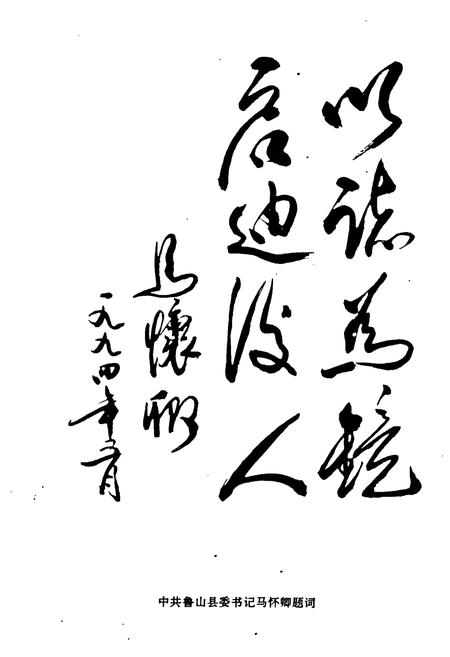 以誌为鏡
启迪後人
马懷卿
一九九四年六月
中共鲁山县委书记马怀卿题词